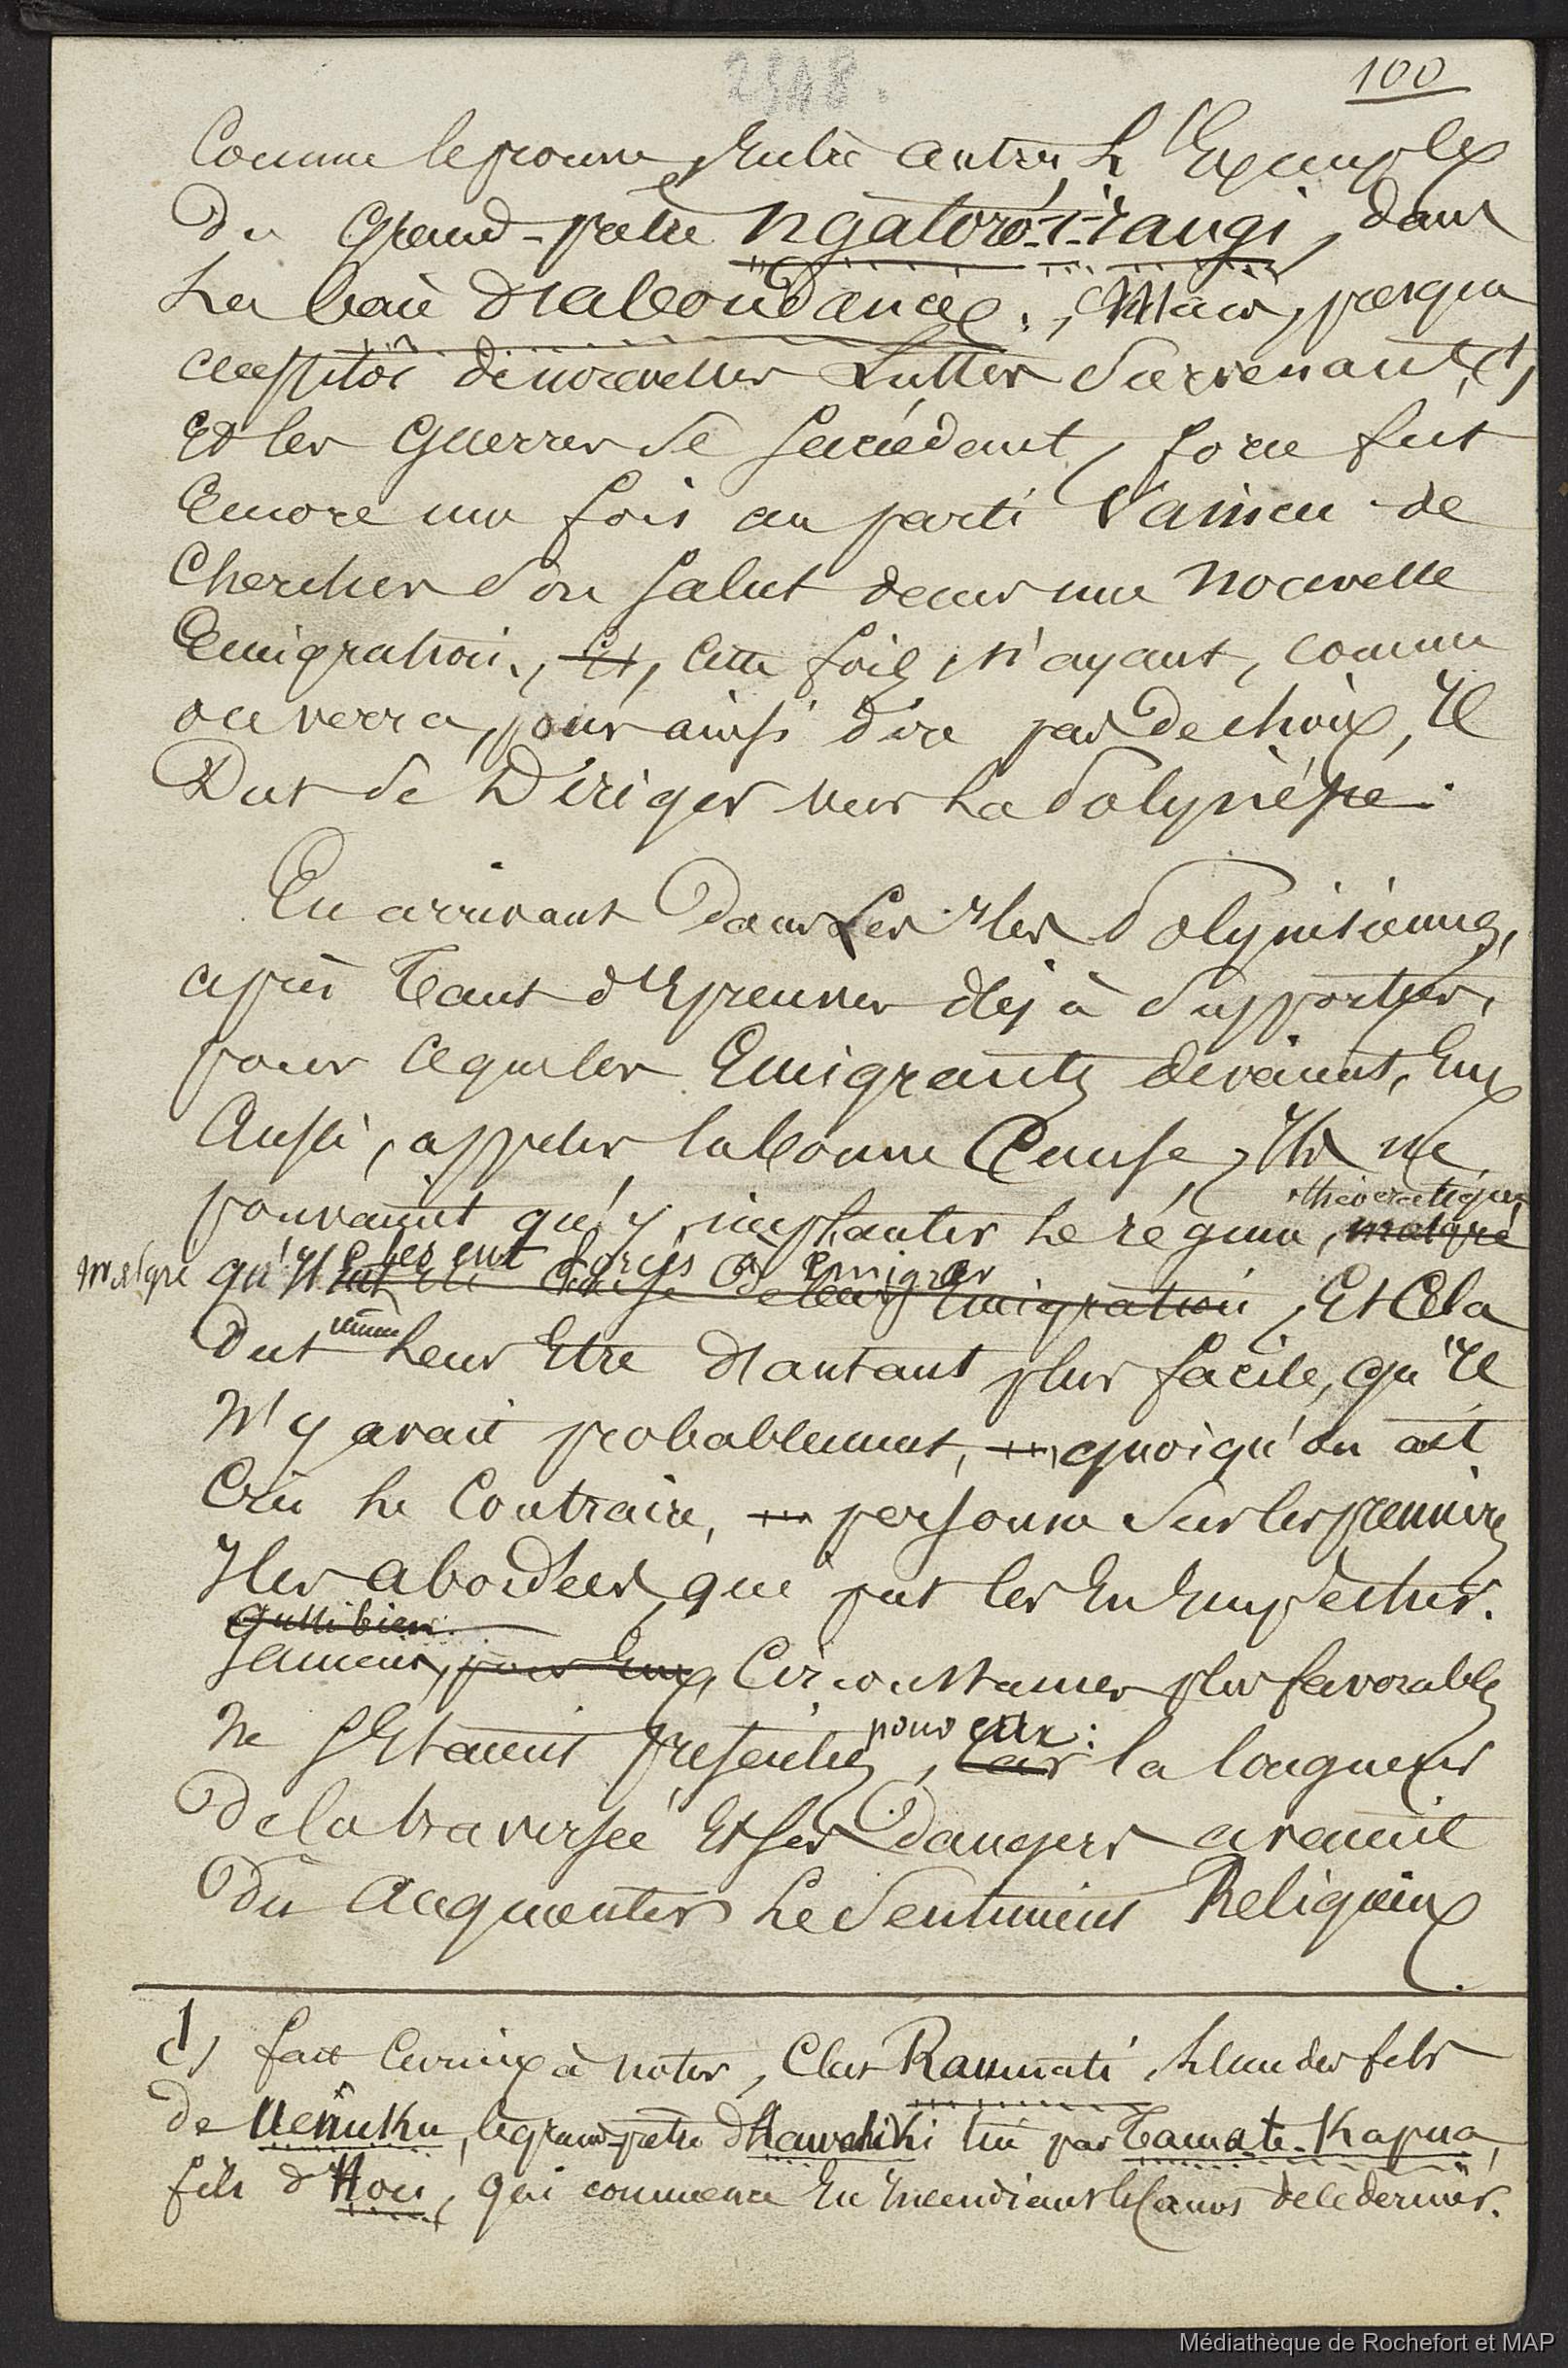 2548.
100
Comme le prouve, Entre autres, L'Exemple
Du Grand-prêtre Ngatoro-i-rangi, dans
La baie d'abondance., Mais, presqu'
aussitôt de nouvelles Luttes Survenant, (1)
Et les Guerres Se succédant, force fut
Encore une fois au parti Vaincu de
Chercher Son Salut dans une nouvelle
Emigration., Et, cette fois, N'ayant, comme
on verra, pour ainsi dire pas De choix, Il
Dut se Diriger vers La Polynésie.
En arrivant Dans Les Iles Polynésiennes,
après Tant d'Epreuves déjà Supportées,
pour ce que les Emigrants devaient, Eux
Aussi, appeler la bonne Cause, Ils ne
pouvaient qu'y implanter Le régime, malgré
théocratique
malgré qu'Il eut été Cause De leur Emigration, Et Cela
les eut forcés à Emigrer
Dut même Leur Etre d'autant plus facile, qu'Il
N'y avait probablement, quoiqu'on ait
Crû Le Contraire, personne Sur les premières
Iles abordées, qui put les En Empêcher.
Jamais, pour Eux, Circonstances plus favorables
ne s'Etaient présentées pour eux : car la longueur
De la traversée Et ses Dangers avaient
Dû Augmenter Le Sentiment Religieux.
(1) fait Curieux à noter, C'est Raumati, L'un des fils
de Uenuku, le grand-prêtre d'Hawahiki tué par Tamate-Kapua,
fils d'Hou, qui commence En Incendiant le Canot de ce dernier.
Médiathèque de Rochefort et MAP